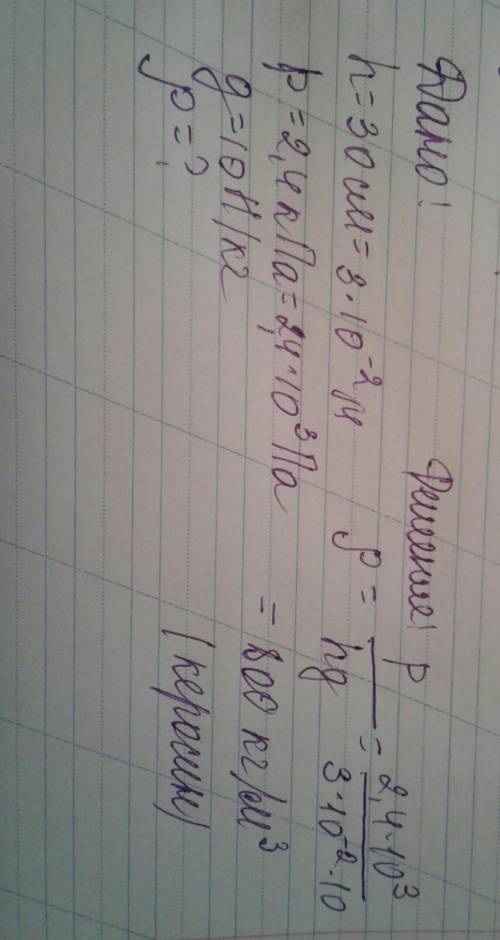 Дано:
h=30см=3·10⁻²м
p=2,4кПа=2,4·10³Па
g=10Н/кг
ρ=?
Решение:
ρ = p/hg = 2,4·10³/3·10⁻²·10
= 800 кг/м³
(керосин)